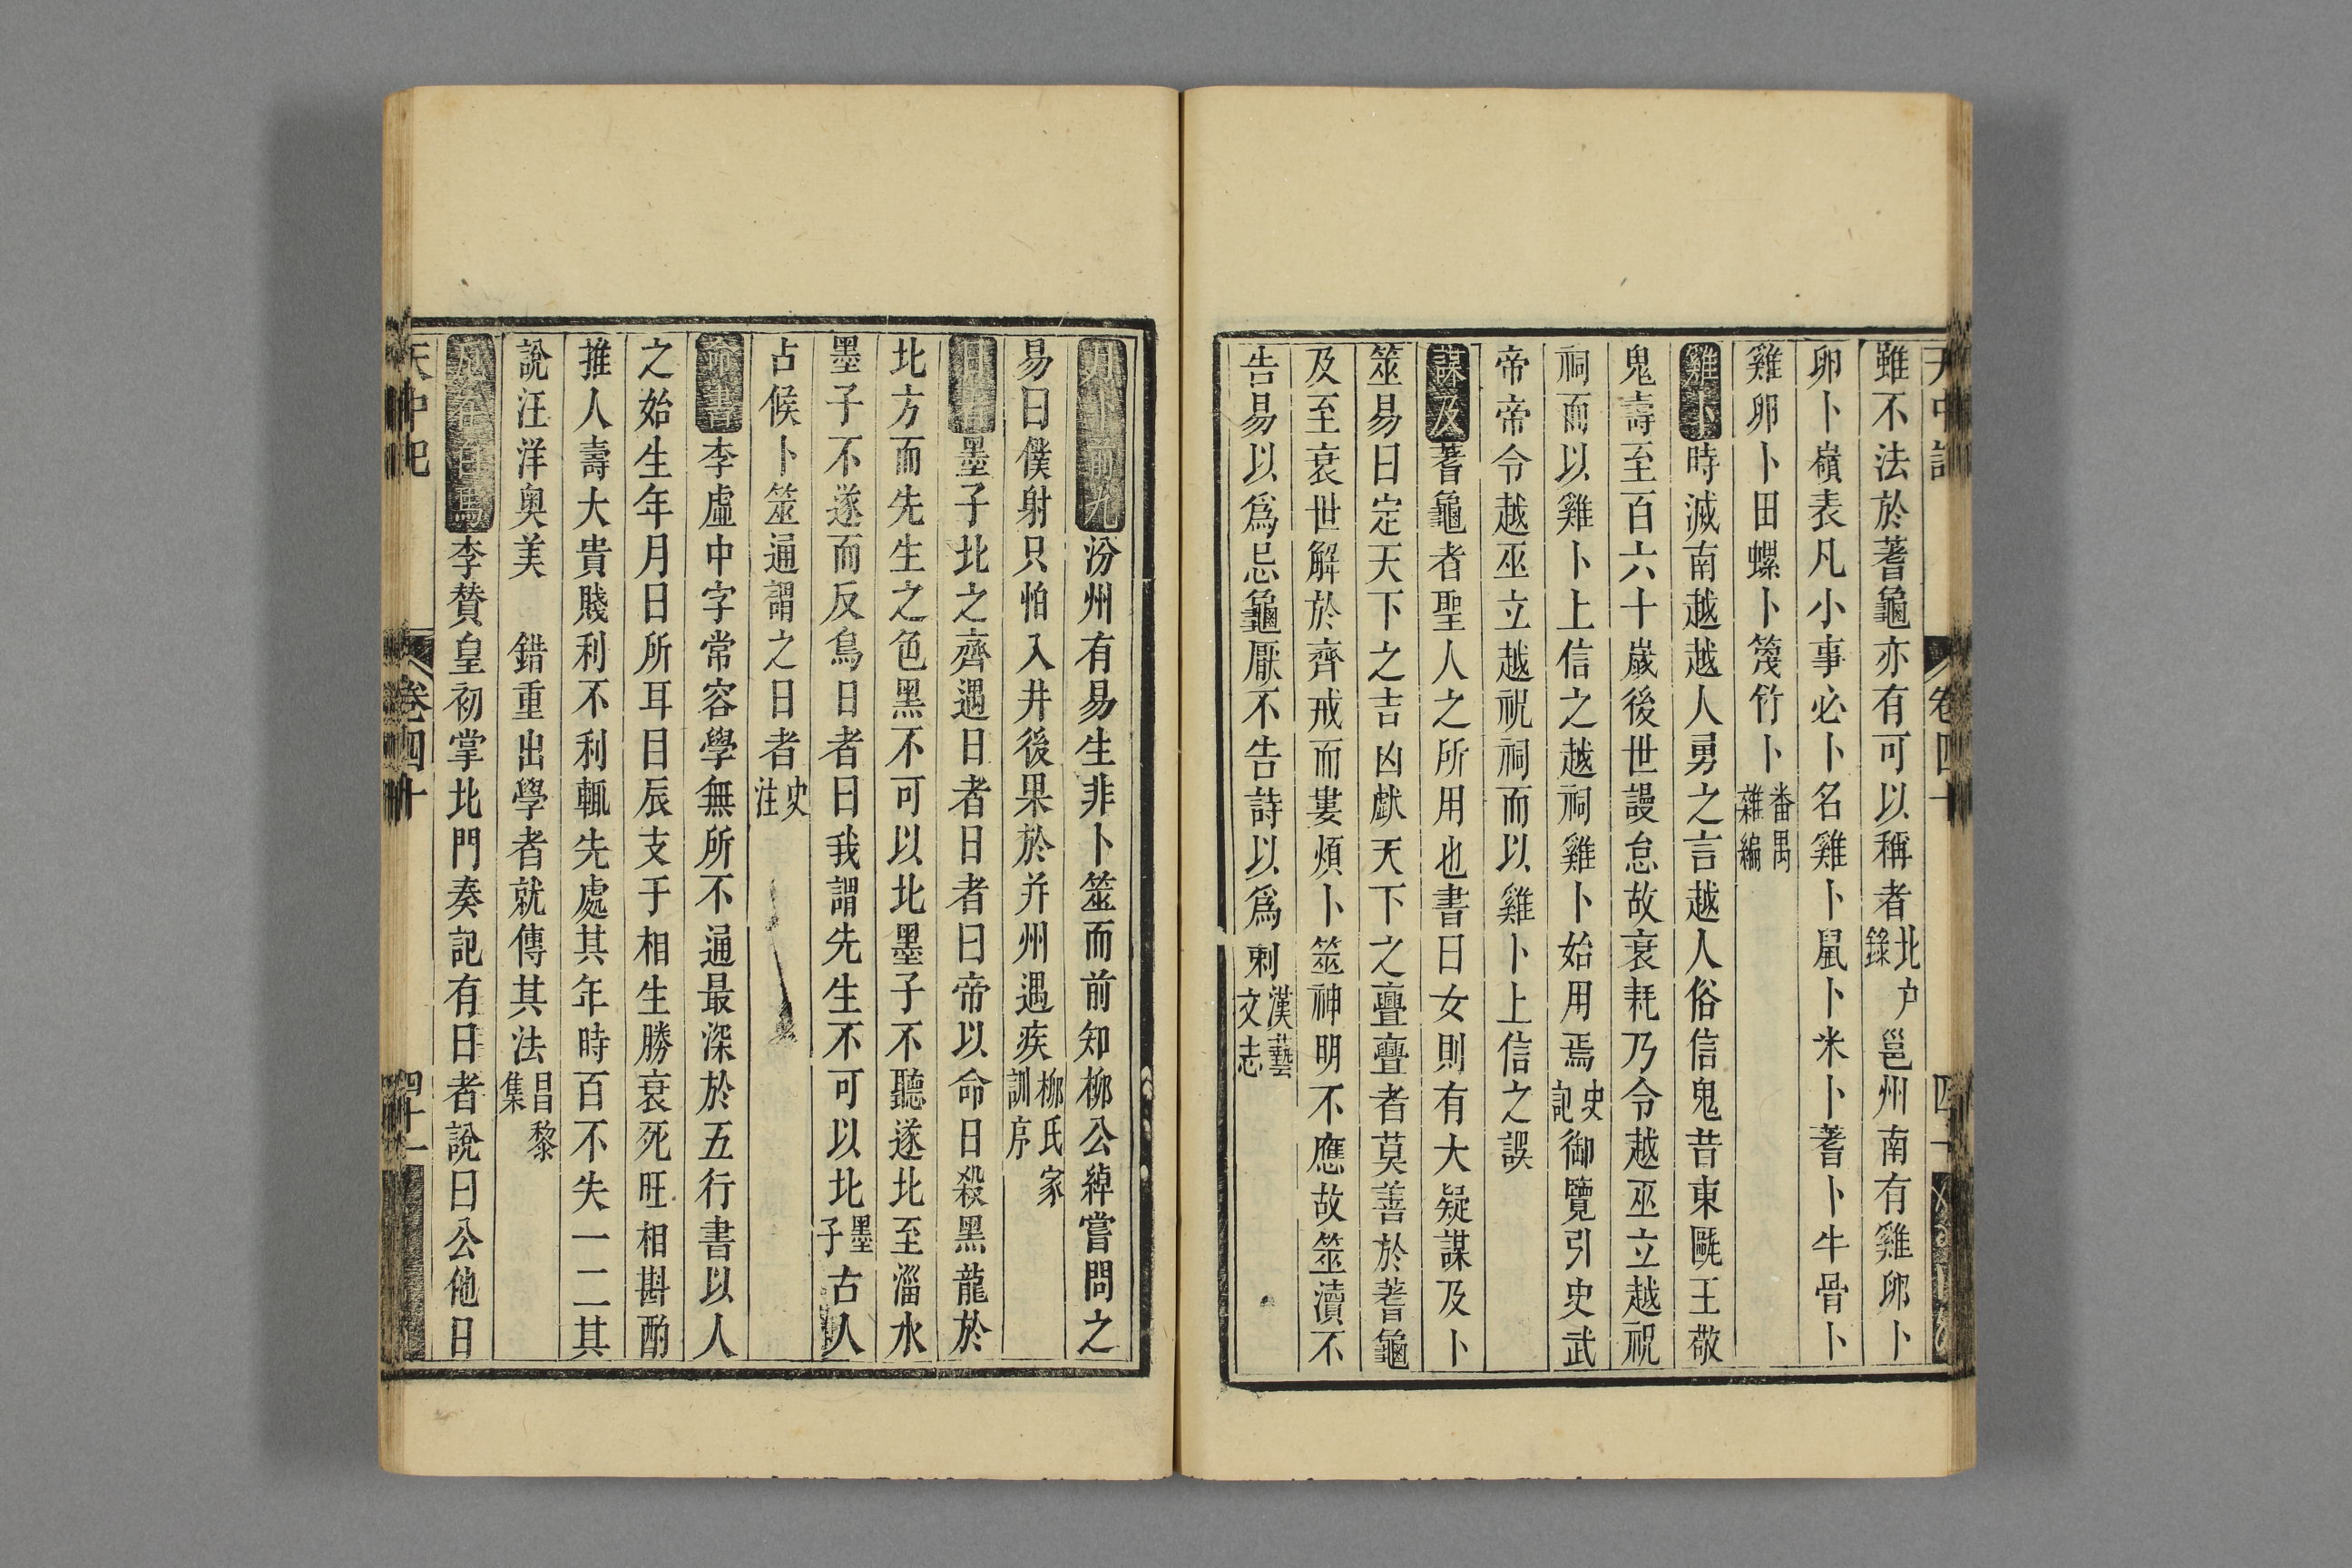 天中記
卷四十
四十
雖不法於蓍龜亦有可以稱者北户錄邕州南有雞卵卜
卵卜嶺表凡小事必卜名雞卜鼠卜米卜蓍卜牛骨卜
雞卵卜田螺卜篾竹卜番禺雜編
雞卜時滅南越越人勇之言越人俗信鬼昔東甌王敬
鬼壽至百六十歲後世謾怠故衰耗乃令越巫立越祝
祠而以雞卜上信之越祠雞卜始用焉史記御覽引史武
帝帝令越巫立越祝祠而以雞卜上信之誤
謀及蓍龜者聖人之所用也書曰女則有大疑謀及卜
筮易曰定天下之吉凶猷天下之亹亹者莫善於蓍龜
及至衰世解於齊戒而婁煩卜筮神明不應故筮瀆不
告易以爲忌龜厭不告詩以爲刺漢藝文志
汾州有易生非卜筮而前知柳公綽嘗問之
易曰僕射只怕入井後果於并州遇疾柳氏家訓序
日者墨子北之齊遇日者日者曰帝以命日殺黑龍於
北方而先生之色黑不可以北墨子不聽遂北至淄水
墨子不遂而反焉日者曰我謂先生不可以北墨子古人
占候卜筮通謂之日者史注
命書李虛中字常容學無所不通最深於五行書以人
之始生年月日所耳日辰支于相生勝衰死旺相斟酌
推人壽大貴賤利不利輒先處其年時百不失一二其
說汪洋奥美 錯重出學者就傳其法昌黎集
李贊皇初掌北門奏記有日者說曰公他日
天中記
卷四十
四十一